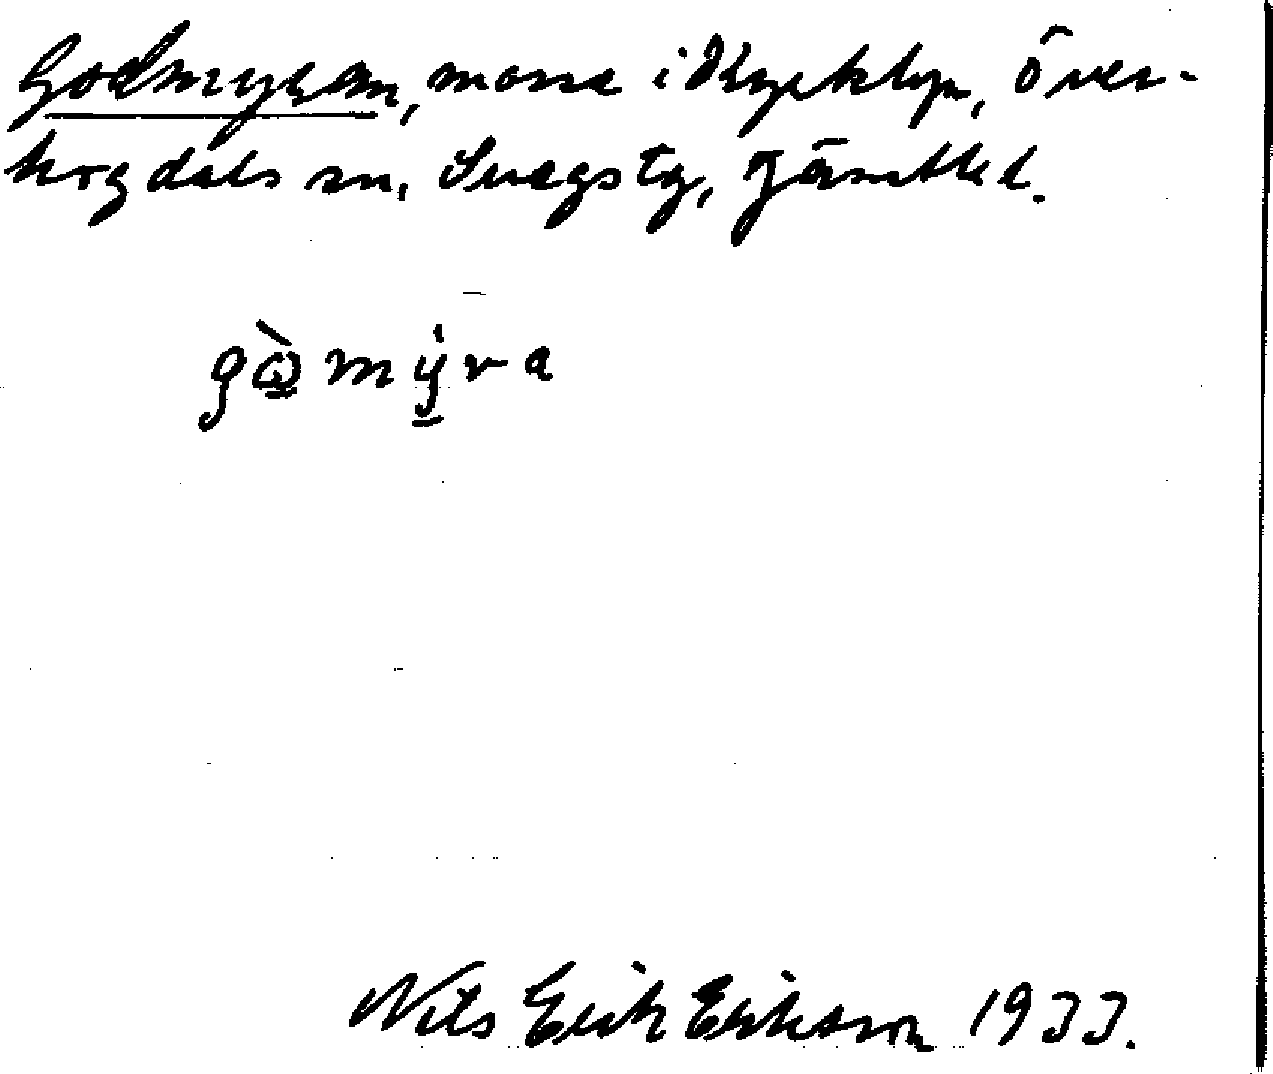 Godmyran, mosse i Kyrkbyn, Över-
hogdals sn, Svegs tg, Jämtl. l.
gò̱mẏ̱ra
Nils Erik Erikson 1933.